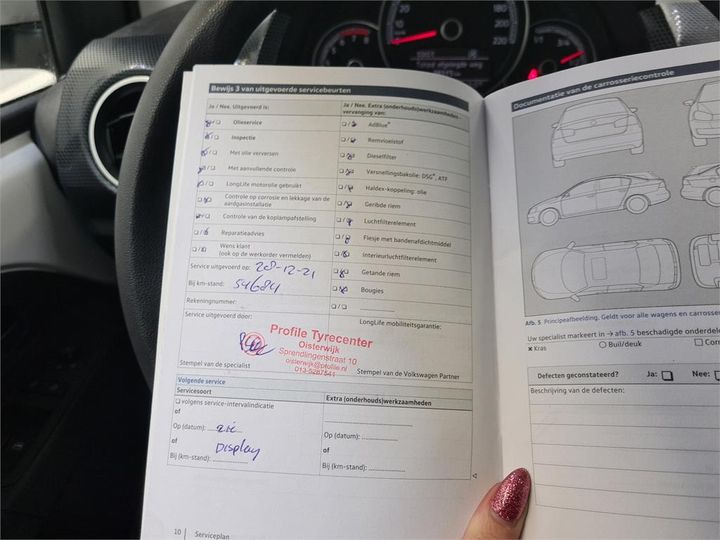 20
180
200
220
1/1
3/4
Bewijs 3 van uitgevoerde servicebeurten
Ja / Nee. Uitgevoerd is:
Olieservice
Inspectie
Met olie verversen
Met aanvullende controle
LongLife motorolie gebruikt
Controle op corrosie en lekkage van de
aardgasinstallatie
Controle van de koplampafstelling
Reparatieadvies
Wens klant
(ook op de werkorder vermelden)
Service uitgevoerd op: 28-12-21
Bij km-stand: 54684
Rekeningnummer:
Service uitgevoerd door:
Ja / Nee. Extra (onderhouds)werkzaamheden
vervanging van:
AdBlue®
Remvloeistof
Dieselfilter
Versnellingsbakolie: DSG®, ATF
Haldex-koppeling: olie
Geribde riem
Luchtfilterelement
Flesje met bandenafdichtmiddel
Interieurluchtfilterelement
Getande riem
Bougies
LongLife mobiliteitsgarantie:
Profile Tyrecenter
Oisterwijk
Sprendlingenstraat 10
oisterwijk@profile.nl
013-5287541
Stempel van de specialist
Stempel van de Volkswagen Partner
Volgende service
Servicesoort
volgens service-intervalindicatie
of
Op (datum): zie
of Display
Bij (km-stand):
Extra (onderhouds)werkzaamheden
Op (datum):
of
Bij (km-stand):
10 Serviceplan
Documentatie van de carrosseriecontrole
Afb. 5 Principeafbeelding. Geldt voor alle wagens en carrosser
Uw specialist markeert in → afb. 5 beschadigde onderdele
Kras
Buil/deuk
Corr
Defecten geconstateerd? Ja: Nee:
Beschrijving van de defecten: